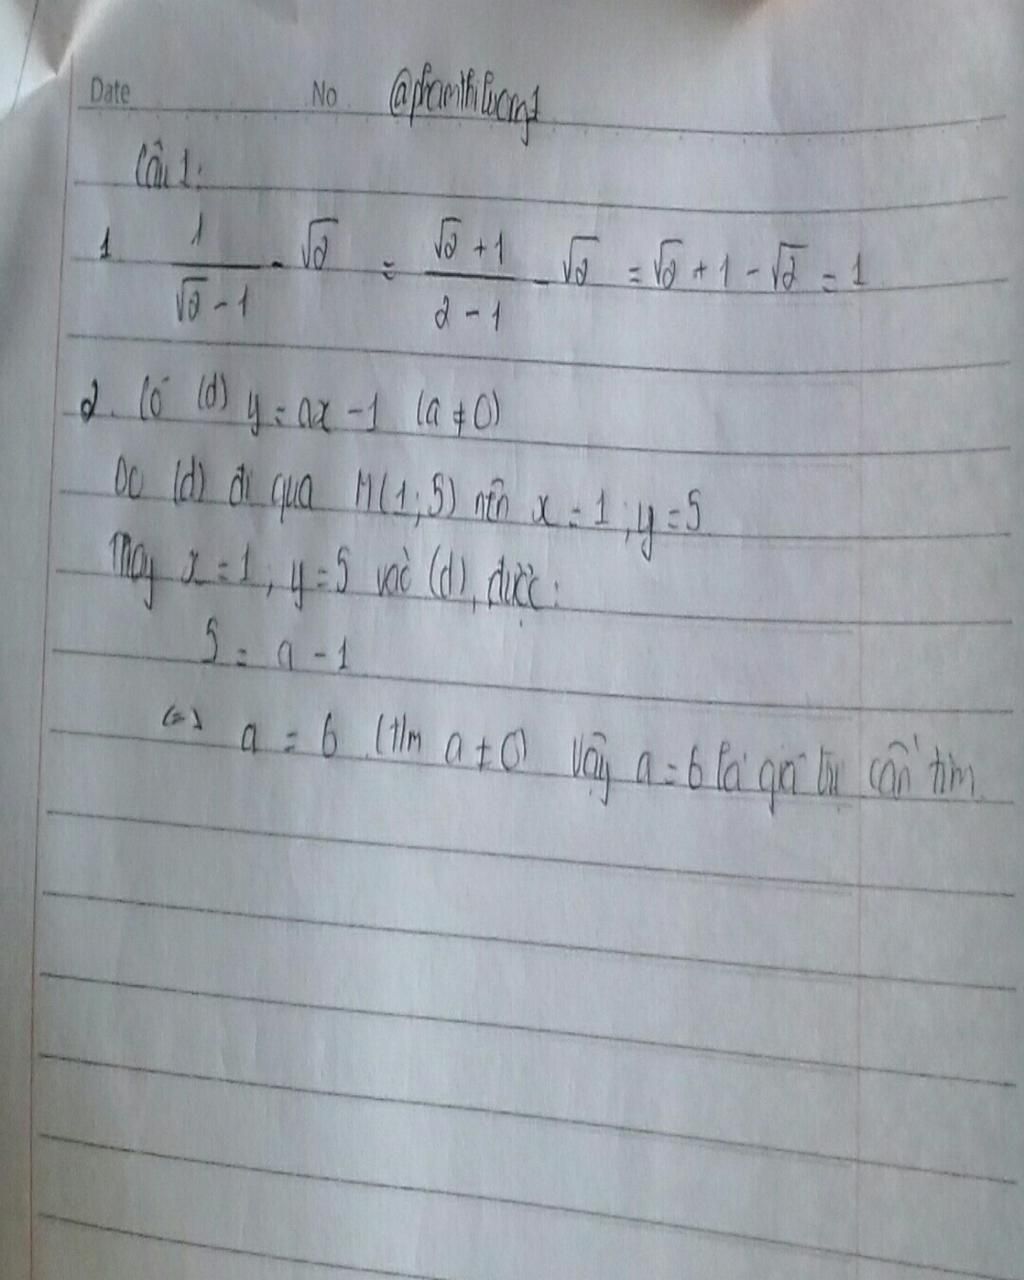 Date No @phamthiluong1
Câu 1:
1. 1/(√2 - 1) - √2 = (√2 + 1)/(2 - 1) - √2 = √2 + 1 - √2 = 1
2. Có (d) y = ax - 1 (a ≠ 0)
Do (d) đi qua M(1;5) nên x = 1, y = 5
Thay x = 1, y = 5 vào (d), được:
5 = a - 1
<=> a = 6 (t/m a ≠ 0) Vậy a = 6 là giá trị cần tìm.